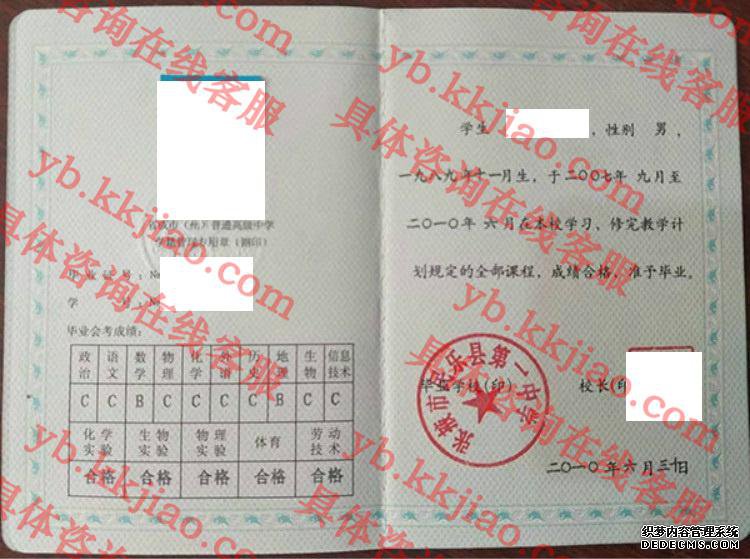 省或市（州）普通高级中学
学籍管理专用章（钢印）
毕业证号：№
学 号：№
毕业会考成绩：
政治 语文 数学 物理 化学 外语 历史 地理 生物 信息技术
C C B C C C C B C C
化学实验 生物实验 物理实验 体育 劳动技术
合格 合格 合格 合格 合格
学生 ，性别 男，
一九八九年十一月生，于二〇〇七年 九月至
二〇一〇年 六月在本校学习、修完教学计
划规定的全部课程，成绩合格，准予毕业。
毕业学校(印) 校长(印
张掖市民乐县第一中学
二〇一〇年六月三十日
具体咨询在线客服
yb.kkjiao.com
具体咨询在线客服
yb.kkjiao.com
具体咨询在线客服
yb.kkjiao.com
具体咨询在线客服
yb.kkjiao.com
织梦内容管理系统
DEDECMS.COM